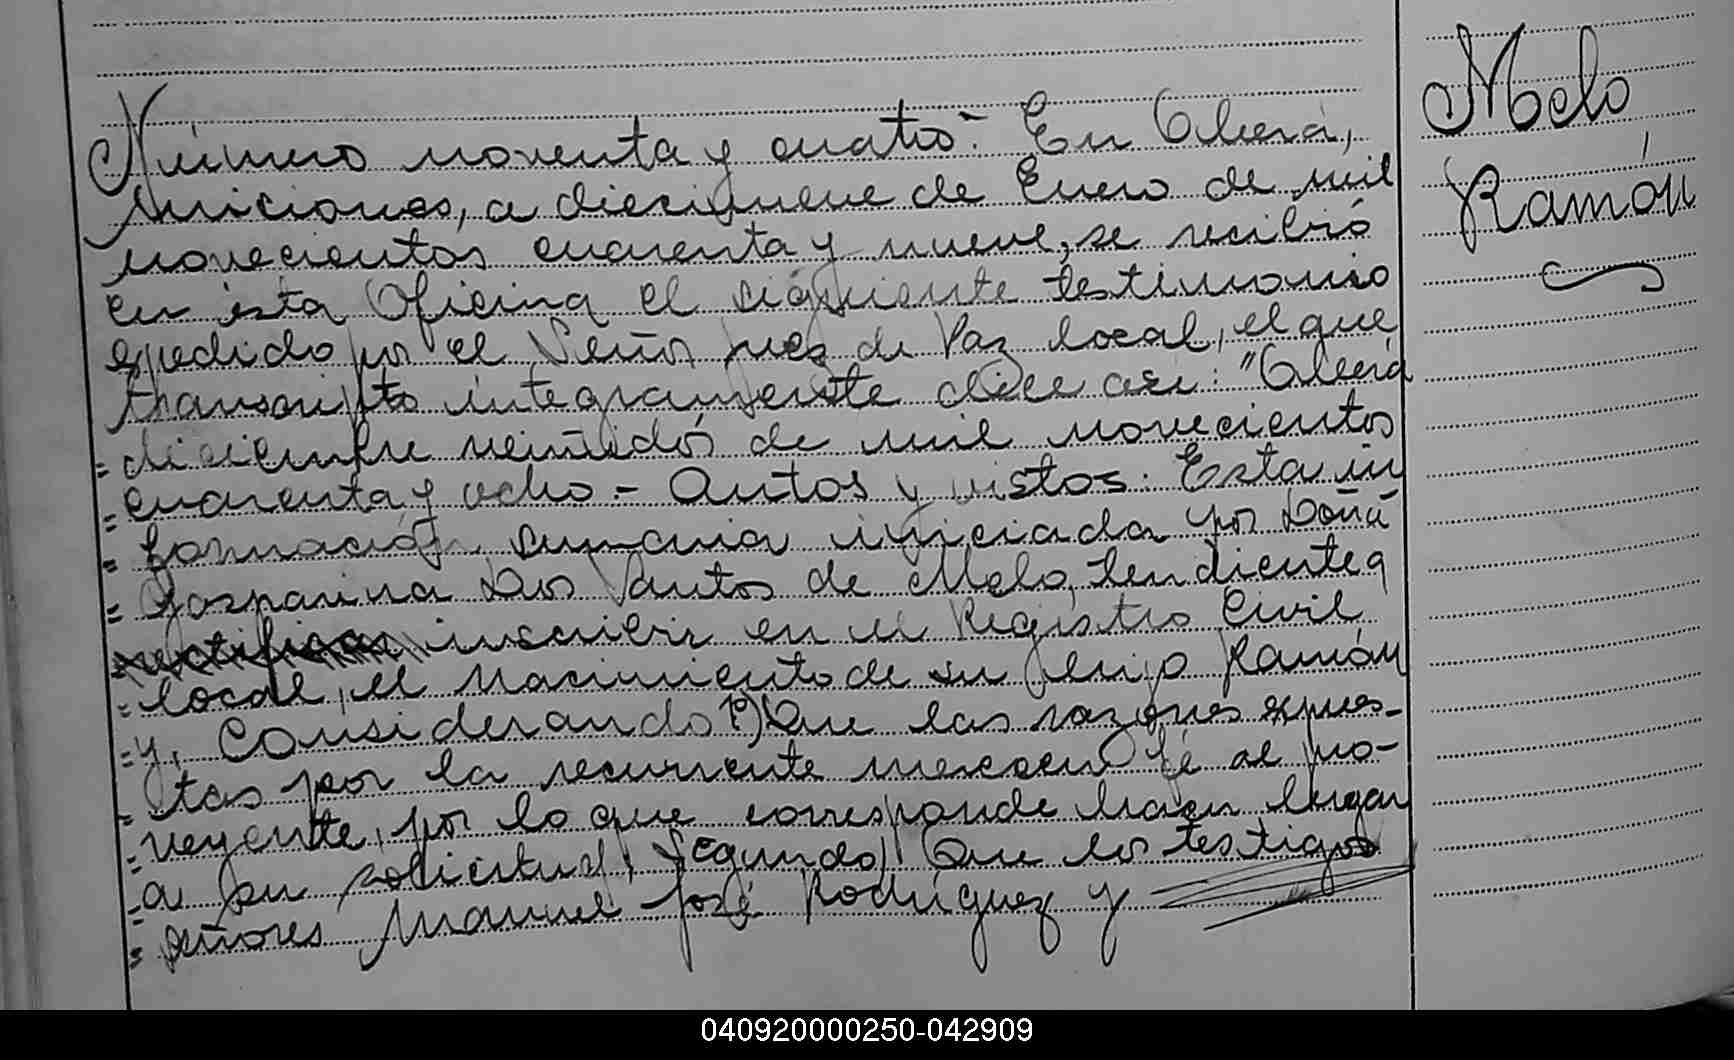 Número noventa y cuatro.- En Oberá,
Misiones, a diecinueve de Enero de mil
novecientos cuarenta y nueve, se recibió
en ésta Oficina el siguiente testimonio
expedido por el Señor Juez de Paz local, el que
transcripto integramente dice asi: "Oberá
= diciembre veintidós de mil novecientos
= cuarenta y ocho.- Autos y vistos: Esta in
= formación sumaria iniciada por Doña
= Gasparina Dos Santos de Melo, tendiente a
rectificar inscribir en el Registro Civil
= local, el nacimiento de su hijo Ramón
= y, Considerando 1º) Que las razones expues-
= tas por la recurriente merecen fé al pro-
= veyente, por lo que corresponde hacer lugar
= a su solicitud; Segundo) Que los testigos
= señores Manuel José Rodríguez y
Melo
Ramón
040920000250-042909